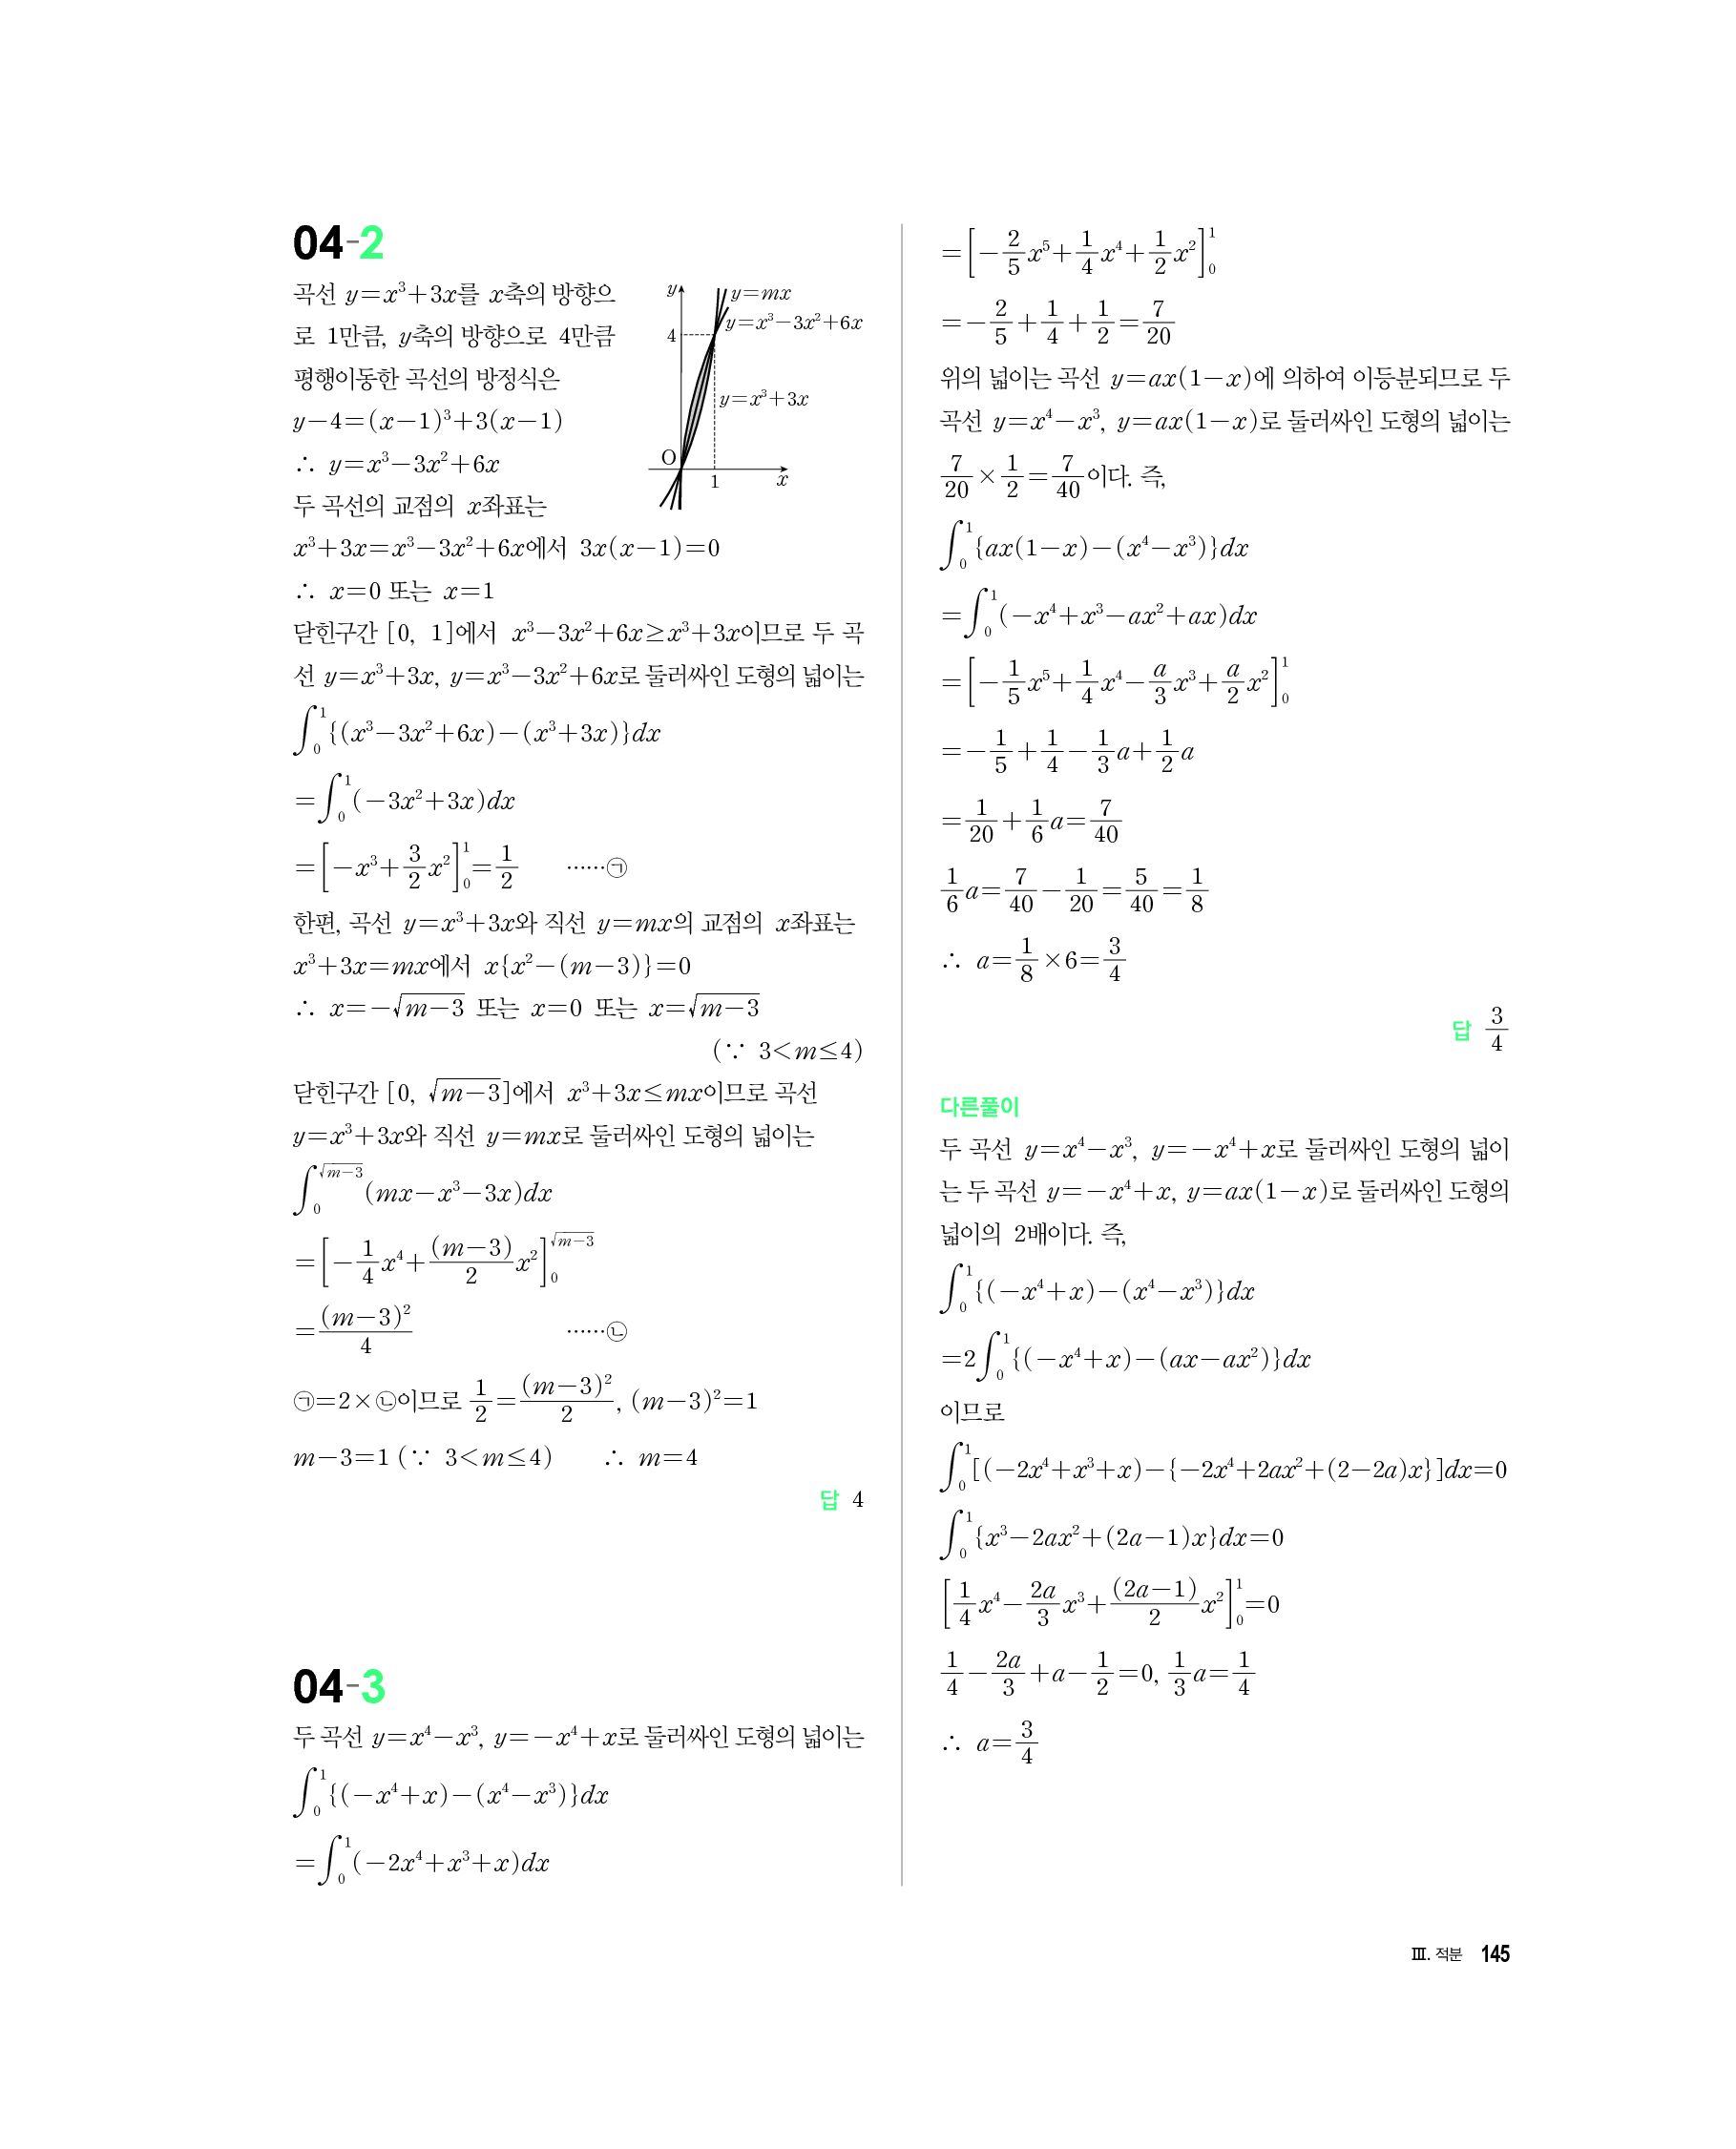 04-2
곡선 y=x³+3x를 x축의 방향으
로 1만큼, y축의 방향으로 4만큼
평행이동한 곡선의 방정식은
y-4=(x-1)³+3(x-1)
∴ y=x³-3x²+6x
두 곡선의 교점의 x좌표는
y
y=mx
y=x³-3x²+6x
4
y=x³+3x
O
1
x
x³+3x=x³-3x²+6x에서 3x(x-1)=0
∴ x=0 또는 x=1
닫힌구간 [0, 1]에서 x³-3x²+6x≥x³+3x이므로 두 곡
선 y=x³+3x, y=x³-3x²+6x로 둘러싸인 도형의 넓이는
∫₀¹{(x³-3x²+6x)-(x³+3x)}dx
=∫₀¹(-3x²+3x)dx
=[-x³+3/2 x²]₀¹=1/2 ……㉠
한편, 곡선 y=x³+3x와 직선 y=mx의 교점의 x좌표는
x³+3x=mx에서 x{x²-(m-3)}=0
∴ x=-√(m-3) 또는 x=0 또는 x=√(m-3)
(∵ 3<m≤4)
닫힌구간 [0, √(m-3)]에서 x³+3x≤mx이므로 곡선
y=x³+3x와 직선 y=mx로 둘러싸인 도형의 넓이는
∫₀^√(m-3) (mx-x³-3x)dx
=[-1/4 x⁴+(m-3)/2 x²]₀^√(m-3)
=(m-3)²/4 ……㉡
㉠=2×㉡이므로 1/2=(m-3)²/2, (m-3)²=1
m-3=1 (∵ 3<m≤4) ∴ m=4
답 4
04-3
두 곡선 y=x⁴-x³, y=-x⁴+x로 둘러싸인 도형의 넓이는
∫₀¹{(-x⁴+x)-(x⁴-x³)}dx
=∫₀¹(-2x⁴+x³+x)dx
=[-2/5 x⁵+1/4 x⁴+1/2 x²]₀¹
=-2/5+1/4+1/2=7/20
위의 넓이는 곡선 y=ax(1-x)에 의하여 이등분되므로 두
곡선 y=x⁴-x³, y=ax(1-x)로 둘러싸인 도형의 넓이는
7/20×1/2=7/40이다. 즉,
∫₀¹{ax(1-x)-(x⁴-x³)}dx
=∫₀¹(-x⁴+x³-ax²+ax)dx
=[-1/5 x⁵+1/4 x⁴-a/3 x³+a/2 x²]₀¹
=-1/5+1/4-1/3 a+1/2 a
=1/20+1/6 a=7/40
1/6 a=7/40-1/20=5/40=1/8
∴ a=1/8×6=3/4
답 3/4
다른풀이
두 곡선 y=x⁴-x³, y=-x⁴+x로 둘러싸인 도형의 넓이
는 두 곡선 y=-x⁴+x, y=ax(1-x)로 둘러싸인 도형의
넓이의 2배이다. 즉,
∫₀¹{(-x⁴+x)-(x⁴-x³)}dx
=2∫₀¹{(-x⁴+x)-(ax-ax²)}dx
이므로
∫₀¹[(-2x⁴+x³+x)-{-2x⁴+2ax²+(2-2a)x}]dx=0
∫₀¹{x³-2ax²+(2a-1)x}dx=0
[1/4 x⁴-2a/3 x³+(2a-1)/2 x²]₀¹=0
1/4-2a/3+a-1/2=0, 1/3 a=1/4
∴ a=3/4
Ⅲ. 적분 145